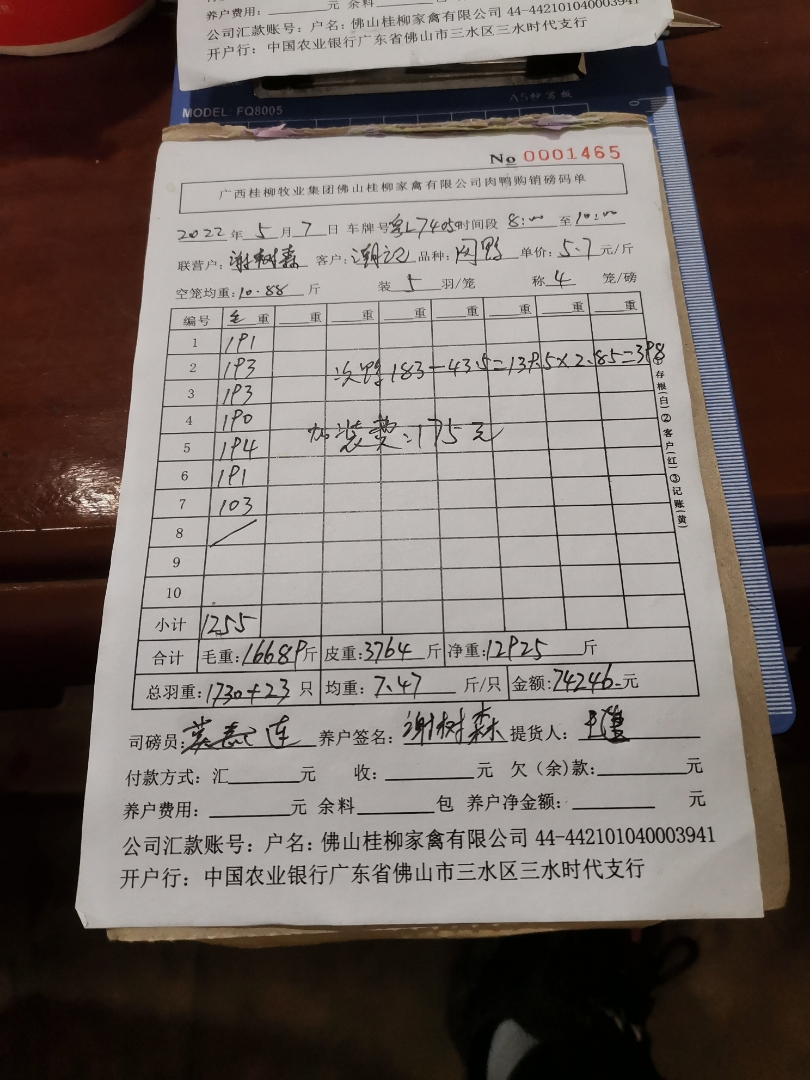 养户费用: 元 余料 包
公司汇款账号: 户名: 佛山桂柳家禽有限公司 44-442101040003941
开户行: 中国农业银行广东省佛山市三水区三水时代支行
MODEL FQ8005
No 0001465
广西桂柳牧业集团佛山桂柳家禽有限公司肉鸭购销磅码单
2022 年 5 月 7 日 车牌号 粤L7405 时间段 8:00 至 10:00
联营户: 谢树森 客户: 潮记 品种: 闪鸭 单价: 5.7 元/斤
空笼均重: 10.88 斤 装 5 羽/笼 称 4 笼/磅
编号 毛 重 重 重 重 重 重 重 重
1 191
2 193 次鸭 183-43.5=139.5×2.85=398
3 193
4 190 加装费:175元
5 194
6 191
7 103
8
9
10
小计 1255
合计 毛重: 16689 斤 皮重: 3764 斤 净重: 12925 斤
总羽重: 1730+23 只 均重: 7.47 斤/只 金额: 74246 元
①存根(白)②客户(红)③记账(黄)
司磅员: 养户签名: 谢树森 提货人:
付款方式: 汇 元 收: 元 欠(余)款: 元
养户费用: 元 余料 包 养户净金额: 元
公司汇款账号: 户名: 佛山桂柳家禽有限公司 44-442101040003941
开户行: 中国农业银行广东省佛山市三水区三水时代支行